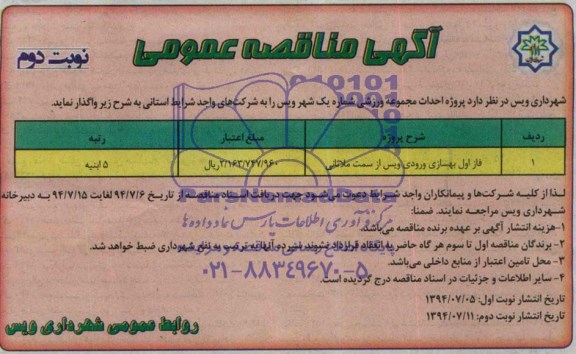 آگهی مناقصه عمومی
نوبت دوم
شهرداری ویس در نظر دارد پروژه احداث مجموعه ورزشی شماره یک شهر ویس را به شرکت‌های واجد شرایط استانی به شرح زیر واگذار نماید.
ردیف شرح پروژه مبلغ اعتبار رتبه
۱ فاز اول بهسازی ورودی ویس از سمت ملاثانی ۲/۱۶۳/۷۴۷/۹۶۰ریال ۵ ابنیه
لذا از کلیه شرکت‌ها و پیمانکاران واجد شرایط دعوت می‌شود جهت دریافت اسناد مناقصه از تاریخ ۹۴/۷/۶ لغایت ۹۴/۷/۱۵ به دبیرخانه
شهرداری ویس مراجعه نمایند. ضمنا:
۱-هزینه انتشار آگهی بر عهده برنده مناقصه می‌باشد.
۲- برندگان مناقصه اول تا سوم هر گاه حاضر به انعقاد قرارداد نشوند سپرده آنها به ترتیب به نفع شهرداری ضبط خواهد شد.
۳- محل تامین اعتبار از منابع داخلی می‌باشد.
۴- سایر اطلاعات و جزئیات در اسناد مناقصه درج گردیده است.
تاریخ انتشار نوبت اول: ۱۳۹۴/۰۷/۰۵
تاریخ انتشار نوبت دوم: ۱۳۹۴/۰۷/۱۱
روابط عمومی شهرداری ویس
ParsNamadData
مرکز فرآوری اطلاعات پارس نماد داده‌ها
۰۲۱-۸۸۳۴۹۶۷۰-۵